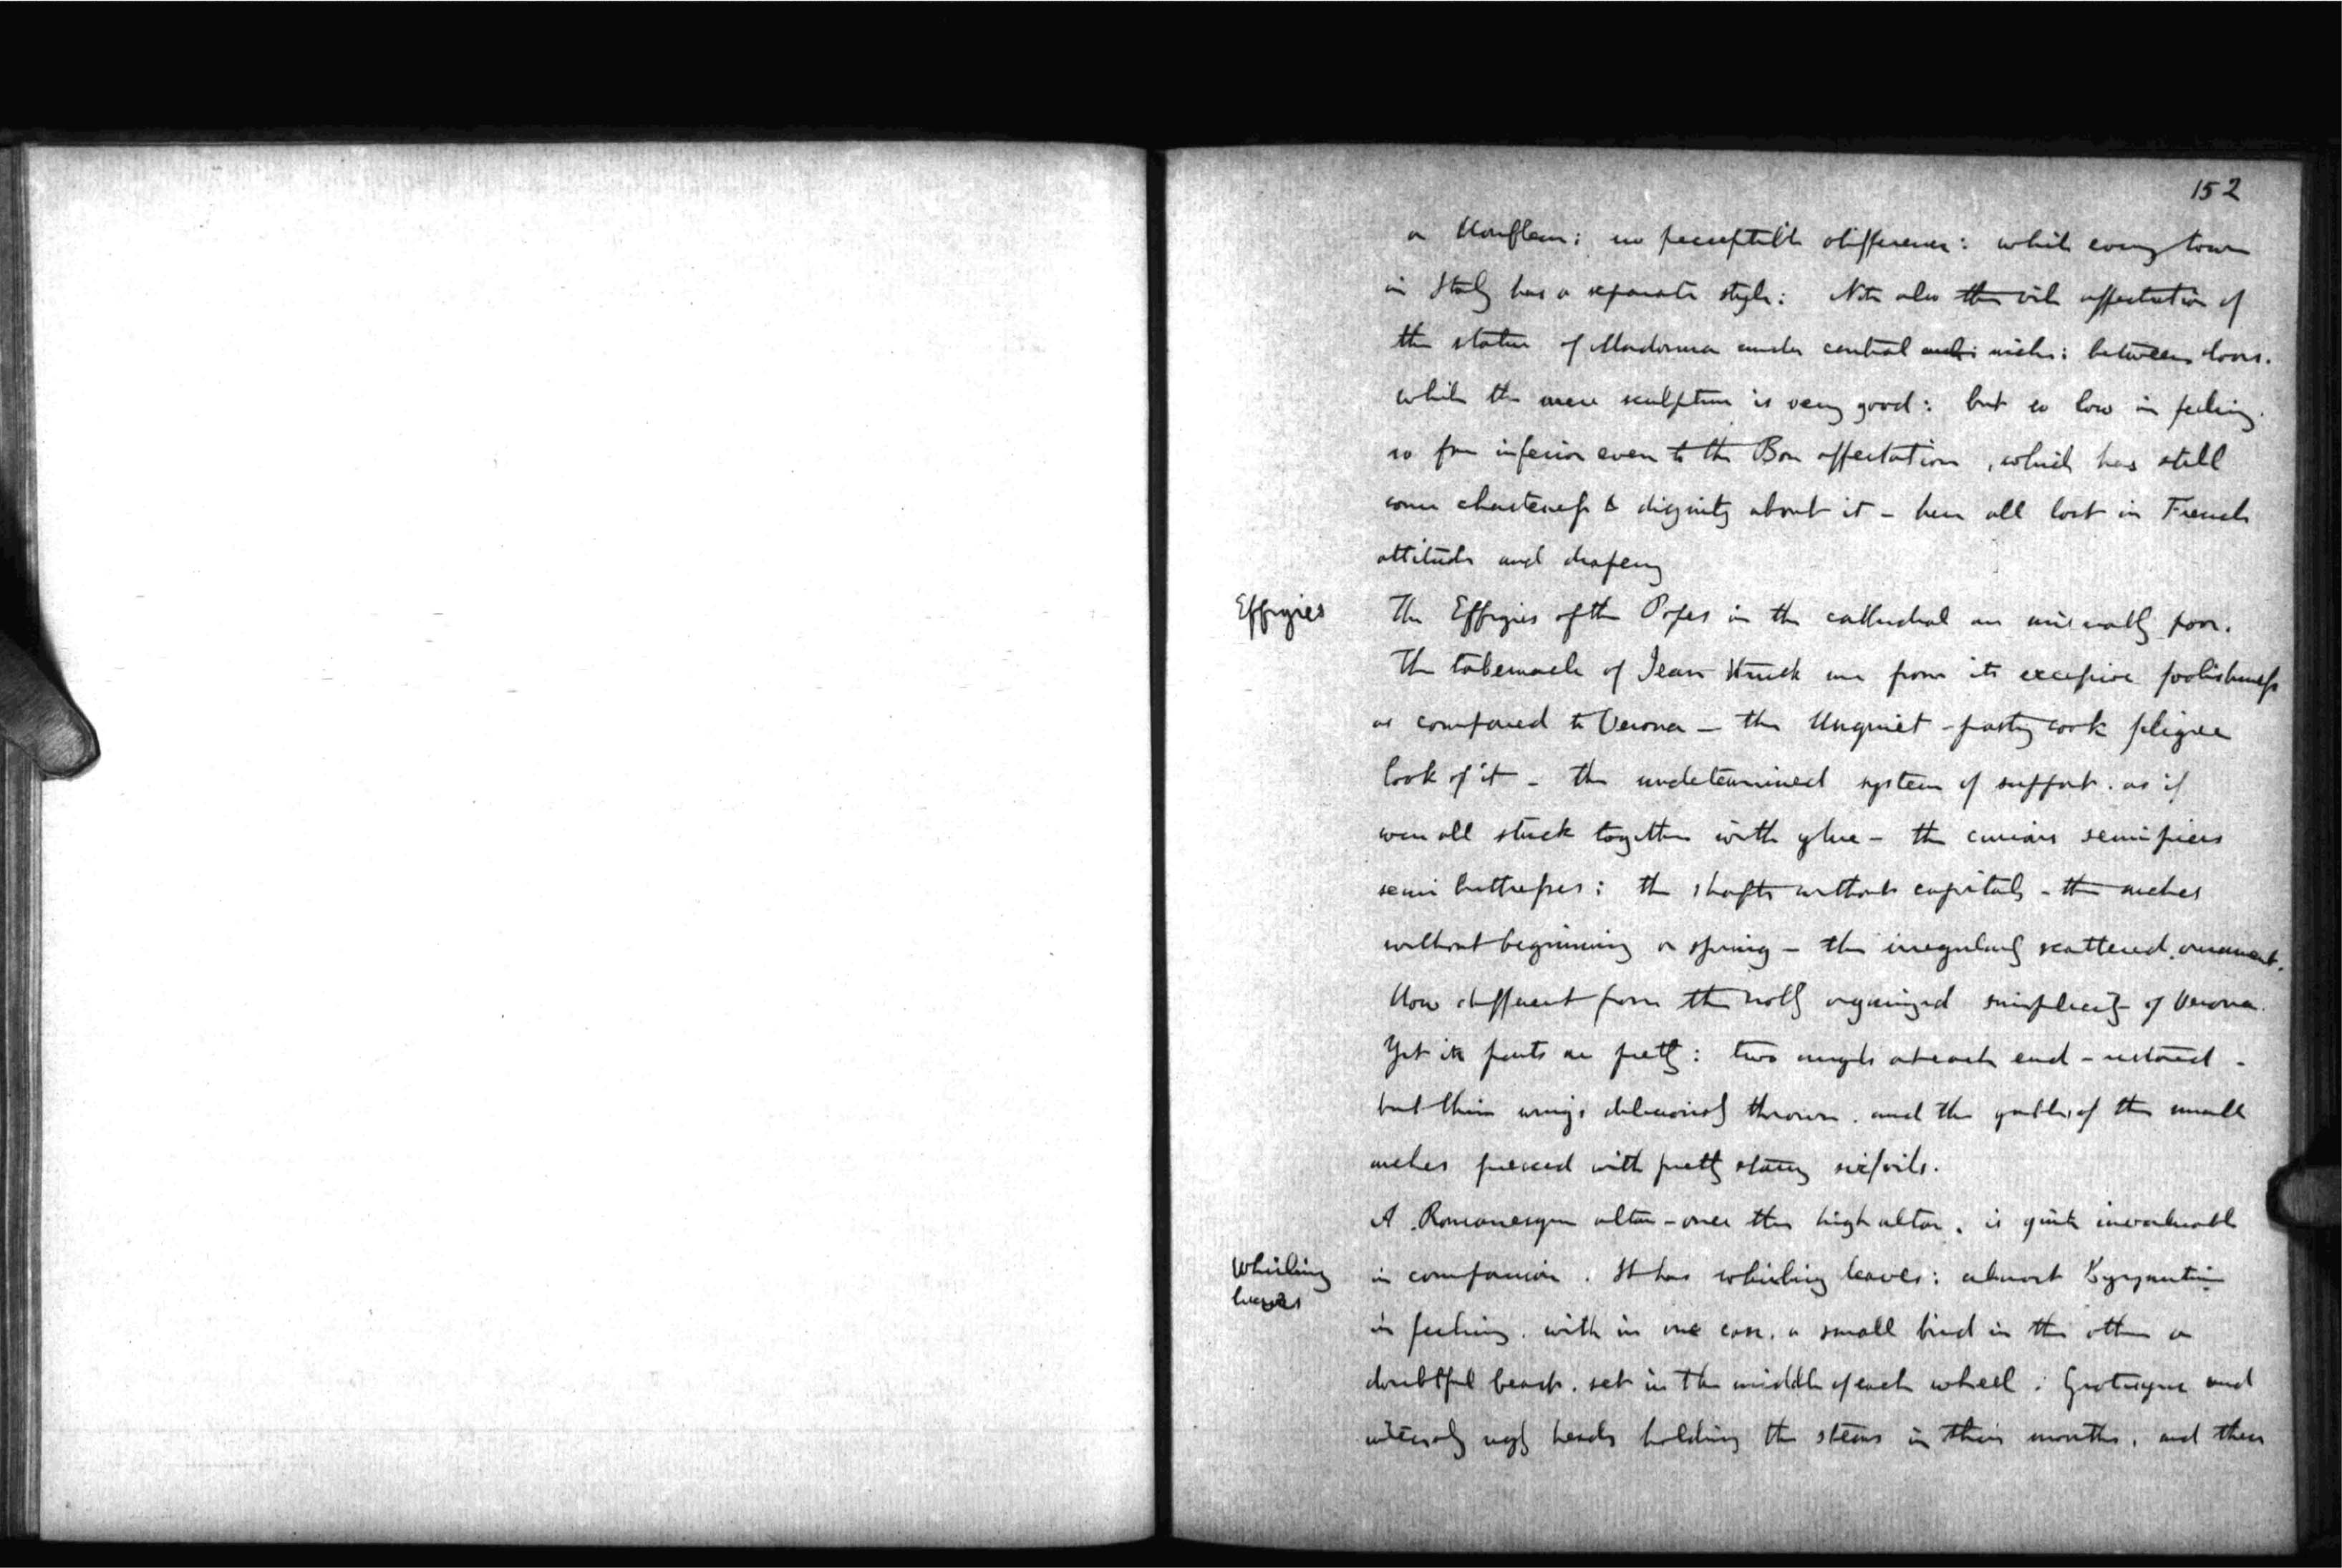 152
or Honfleur; no perceptible difference: while every town
in Italy has a separate style: Note also the vile affectation of
the statue of Madonna under central niche: between doors.
while the mere sculpture is very good: but so low in feeling.
so far inferior even to the Bon affectation, which has still
some chasteness & dignity about it - here all lost in French
attitude and drapery
Effigies
The Effigies of the Popes in the cathedral are universally poor.
The tabernacle of Jean struck me from its excessive foolishness
as compared to Verona - the Unquiet - pastry cook filigree
look of it - the undetermined system of support. as if
were all stuck together with glue - the curious semi piers
semi buttresses: the shafts without capitals - the arches
without beginning or spring - the irregularly scattered ornament.
How different from the nobly organized simplicity of Verona.
Yet its parts are pretty: two angels at each end - restored -
but their wings deliciously thrown. and the gables of the small
arches pierced with pretty starry sixfoils.
A Romanesque altar - over the high altar, is quite invaluable
Whirling
leaves
in comparison. It has whirling leaves: almost Byzantine
in feeling. with in one case, a small bird in the other a
doubtful beast. set in the middle of each wheel: Grotesque and
intensely ugly heads holding the stems in their mouths, and then